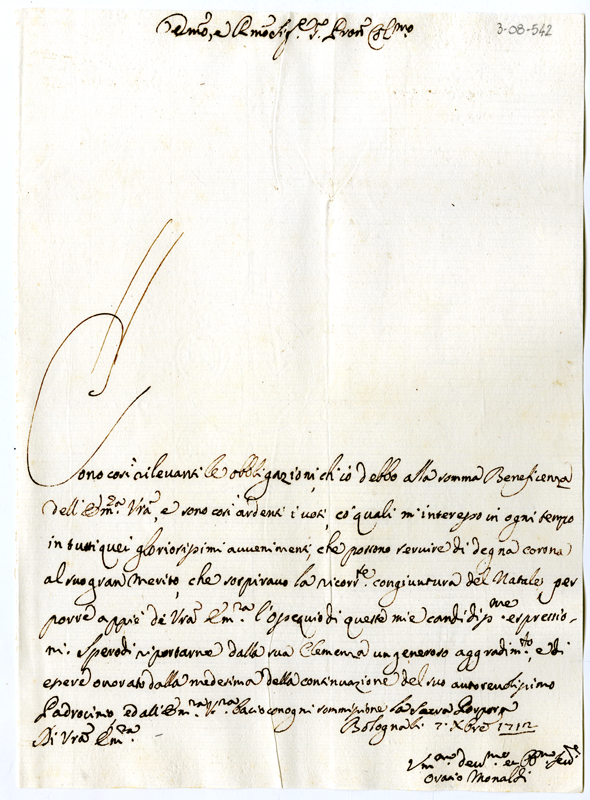 Emō, e Rmō Sig.r Sig.r Pron Colmo
3-08-542
Sono così rilevanti le obbligazioni, ch'io debbo alla somma Beneficenza
dell'Emā. Vrā, e sono così ardenti i voti, co' quali m'interesso in ogni tempo
in tutti quei gloriosissimi avvenimenti, che possono servire di degna corona
al suo gran Merito, che sospiravo la ricorr.te congiuntura del Natale, per
porre appiè de Vrā Em.za l'ossequio di queste mie candidiss.me espressio-
ni. Spero di riportarne dalla sua Clemenza un generoso aggradim.to, e di
essere onorato dalla medesima della continuazione del suo autorevolissimo
Padrocinio, ed all'Em.za Vrā bacio con ogni sommissione la Sacra Porpora
Di Vrā Em.za
Bologna li 7. Xbre 1712
Um.mo dev.mo ed Obb.mo Ser.e
Orazio Monaldi